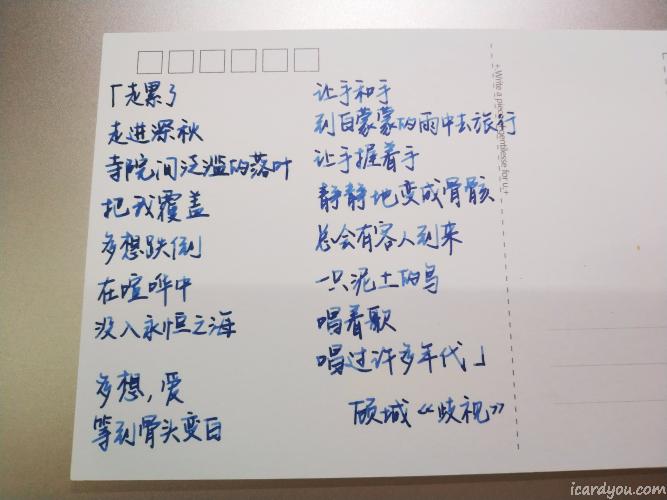 「走累了
走进深秋
寺院间泛滥的落叶
把我覆盖
多想跌倒
在喧哗中
没入永恒之海
多想，爱
等到骨头变白
让手和手
到白蒙蒙的雨中去旅行
让手握着手
静静地变成骨骸
总会有客人到来
一只泥土的鸟
唱着歌
唱过许多年代」
顾城《歧视》
+ Write a piece
for u +
icardyou.com